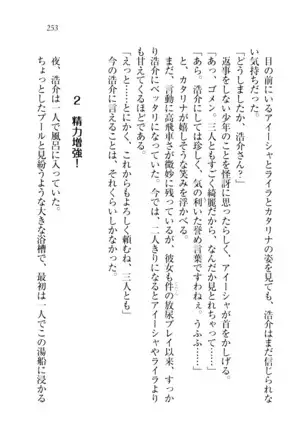 253
目の前にいるアイーシャとライラとカタリナの姿を見ても、浩介はまだ信じられな
い気持ちだった。
「どうかしましたか、浩介さん？」
返事をしない少年のことを怪訝に思ったらしく、アイーシャが首をかしげる。
「あっ、ゴメン。三人ともすごく綺麗だから、なんだか見とれちゃって……」
「あら。浩介にしては珍しく、気の利いた誉め言葉ですわねぇ。うふふ……」
と、カタリナが嬉しそうな笑みを浮かべる。
まだ、言動に高飛車さが微妙に残っているが、彼女も件の放尿プレイ以来、すっか
り浩介にベッタリになっていた。今では、二人きりになるとアイーシャやライラより
も甘えてくるほどである。
「えっと……とにかく、これからもよろしく頼むね、三人とも」
今の浩介に言えることは、それくらいしかなかった。
2　精力増強！
夜、浩介は一人で風呂に入っていた。
ちょっとしたプールと見紛うような大きな浴槽で、最初は一人でこの湯船に浸かる